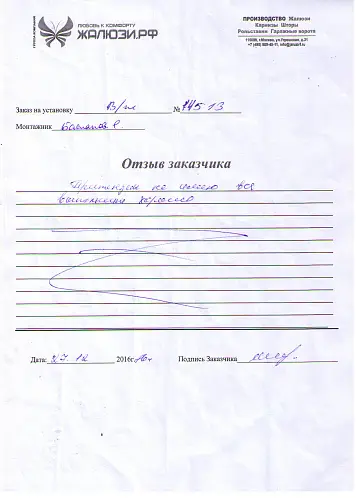 ЛЮБОВЬ К КОМФОРТУ
ЖАЛЮЗИ.РФ
ПРОИЗВОДСТВО Жалюзи
Карнизы Шторы
Рольставни Гаражные ворота
Заказ на установку В/ж № 14513
Монтажник
Отзыв заказчика
Притензии не имею все
выполнено хорошо
Дата: 27.12 2016г.
Подпись Заказчика